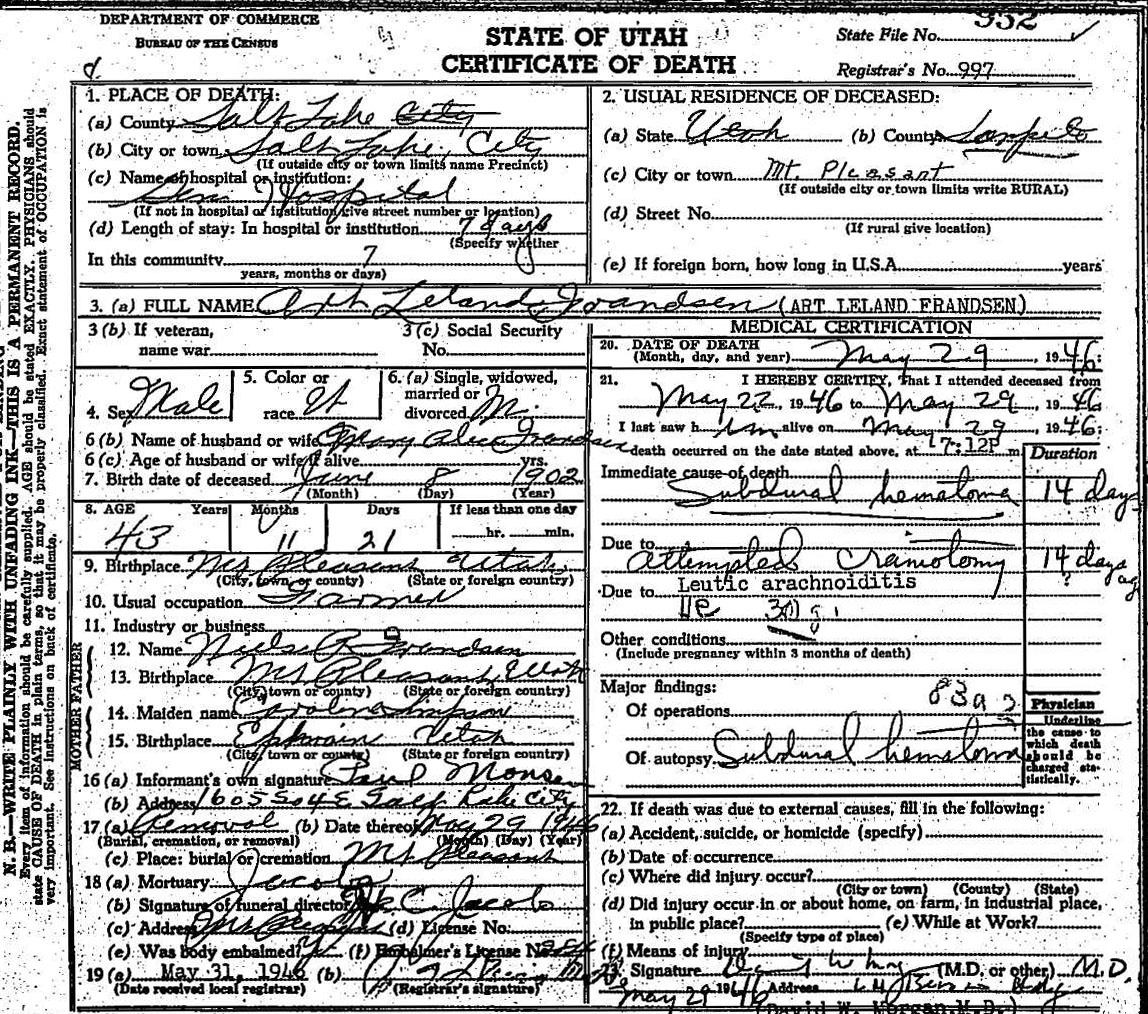 DEPARTMENT OF COMMERCE
BUREAU OF THE CENSUS
STATE OF UTAH
CERTIFICATE OF DEATH
State File No. 932
Registrar's No. 997
N. B.—WRITE PLAINLY WITH UNFADING INK—THIS IS A PERMANENT RECORD.
Every item of information should be carefully supplied. AGE should be stated EXACTLY. PHYSICIANS should
state CAUSE OF DEATH in plain terms, so that it may be properly classified. Exact statement of OCCUPATION is
very important. See instructions on back of certificate.
1. PLACE OF DEATH:
(a) County Salt Lake City
(b) City or town Salt Lake, City
(If outside city or town limits name Precinct)
(c) Name of hospital or institution:
Gen Hospital
(If not in hospital or institution give street number or location)
(d) Length of stay: In hospital or institution 7 days
(Specify whether
In this community 7
years, months or days)
2. USUAL RESIDENCE OF DECEASED:
(a) State Utah (b) County Sanpete
(c) City or town Mt. Pleasant
(If outside city or town limits write RURAL)
(d) Street No.
(If rural give location)
(e) If foreign born, how long in U.S.A. years
3. (a) FULL NAME Art Leland Frandsen (ART LELAND FRANDSEN)
3 (b) If veteran,
name war
3 (c) Social Security
No.
4. Sex Male
5. Color or
race W
6. (a) Single, widowed,
married or
divorced M.
6 (b) Name of husband or wife Mary Alice Frandsen
6 (c) Age of husband or wife if alive yrs.
7. Birth date of deceased June 8 1902
(Month) (Day) (Year)
8. AGE Years Months Days If less than one day
43 11 21 hr. min.
9. Birthplace Mt Pleasant Utah
(City, town, or county) (State or foreign country)
10. Usual occupation Farmer
11. Industry or business
FATHER
12. Name Niels R Frandsen
13. Birthplace Mt Pleasant, Utah
(City, town or county) (State or foreign country)
MOTHER
14. Maiden name Caroline Simpson
15. Birthplace Ephraim Utah
(City, town or county) (State or foreign country)
16 (a) Informant's own signature Paul Monsen
(b) Address 1605 So 4 E Salt Lake City
17 (a) Removal (b) Date thereof May 29 1946
(Burial, cremation, or removal) (Month) (Day) (Year)
(c) Place: burial or cremation Mt Pleasant
18 (a) Mortuary Jacobs
(b) Signature of funeral director C. Jacobs
(c) Address Mt Pleasant (d) License No.
(e) Was body embalmed? (f) Embalmer's License No.
19 (a) May 31, 1946 (b)
(Date received local registrar) (Registrar's signature)
MEDICAL CERTIFICATION
20. DATE OF DEATH
(Month, day, and year) May 29, 1946:
21. I HEREBY CERTIFY, That I attended deceased from
May 22, 1946 to May 29, 1946
I last saw him alive on May 29, 1946:
death occurred on the date stated above, at 7:12P m
Duration
Immediate cause of death
Subdural hematoma 14 days
Due to
Attempted Craniotomy 14 days ag
Due to Leutic arachnoiditis ?
Other conditions
(Include pregnancy within 3 months of death)
Major findings:
Of operations
Of autopsy Subdural hematoma
Physician
Underline
the cause to
which death
should be
charged sta-
tistically.
22. If death was due to external causes, fill in the following:
(a) Accident, suicide, or homicide (specify)
(b) Date of occurrence
(c) Where did injury occur?
(City or town) (County) (State)
(d) Did injury occur in or about home, on farm, in industrial place,
in public place? (e) While at Work?
(Specify type of place)
(f) Means of injury
23. Signature (M.D. or other) M.D.
May 29 1946 Address
(David W. Morgan, M.D.)